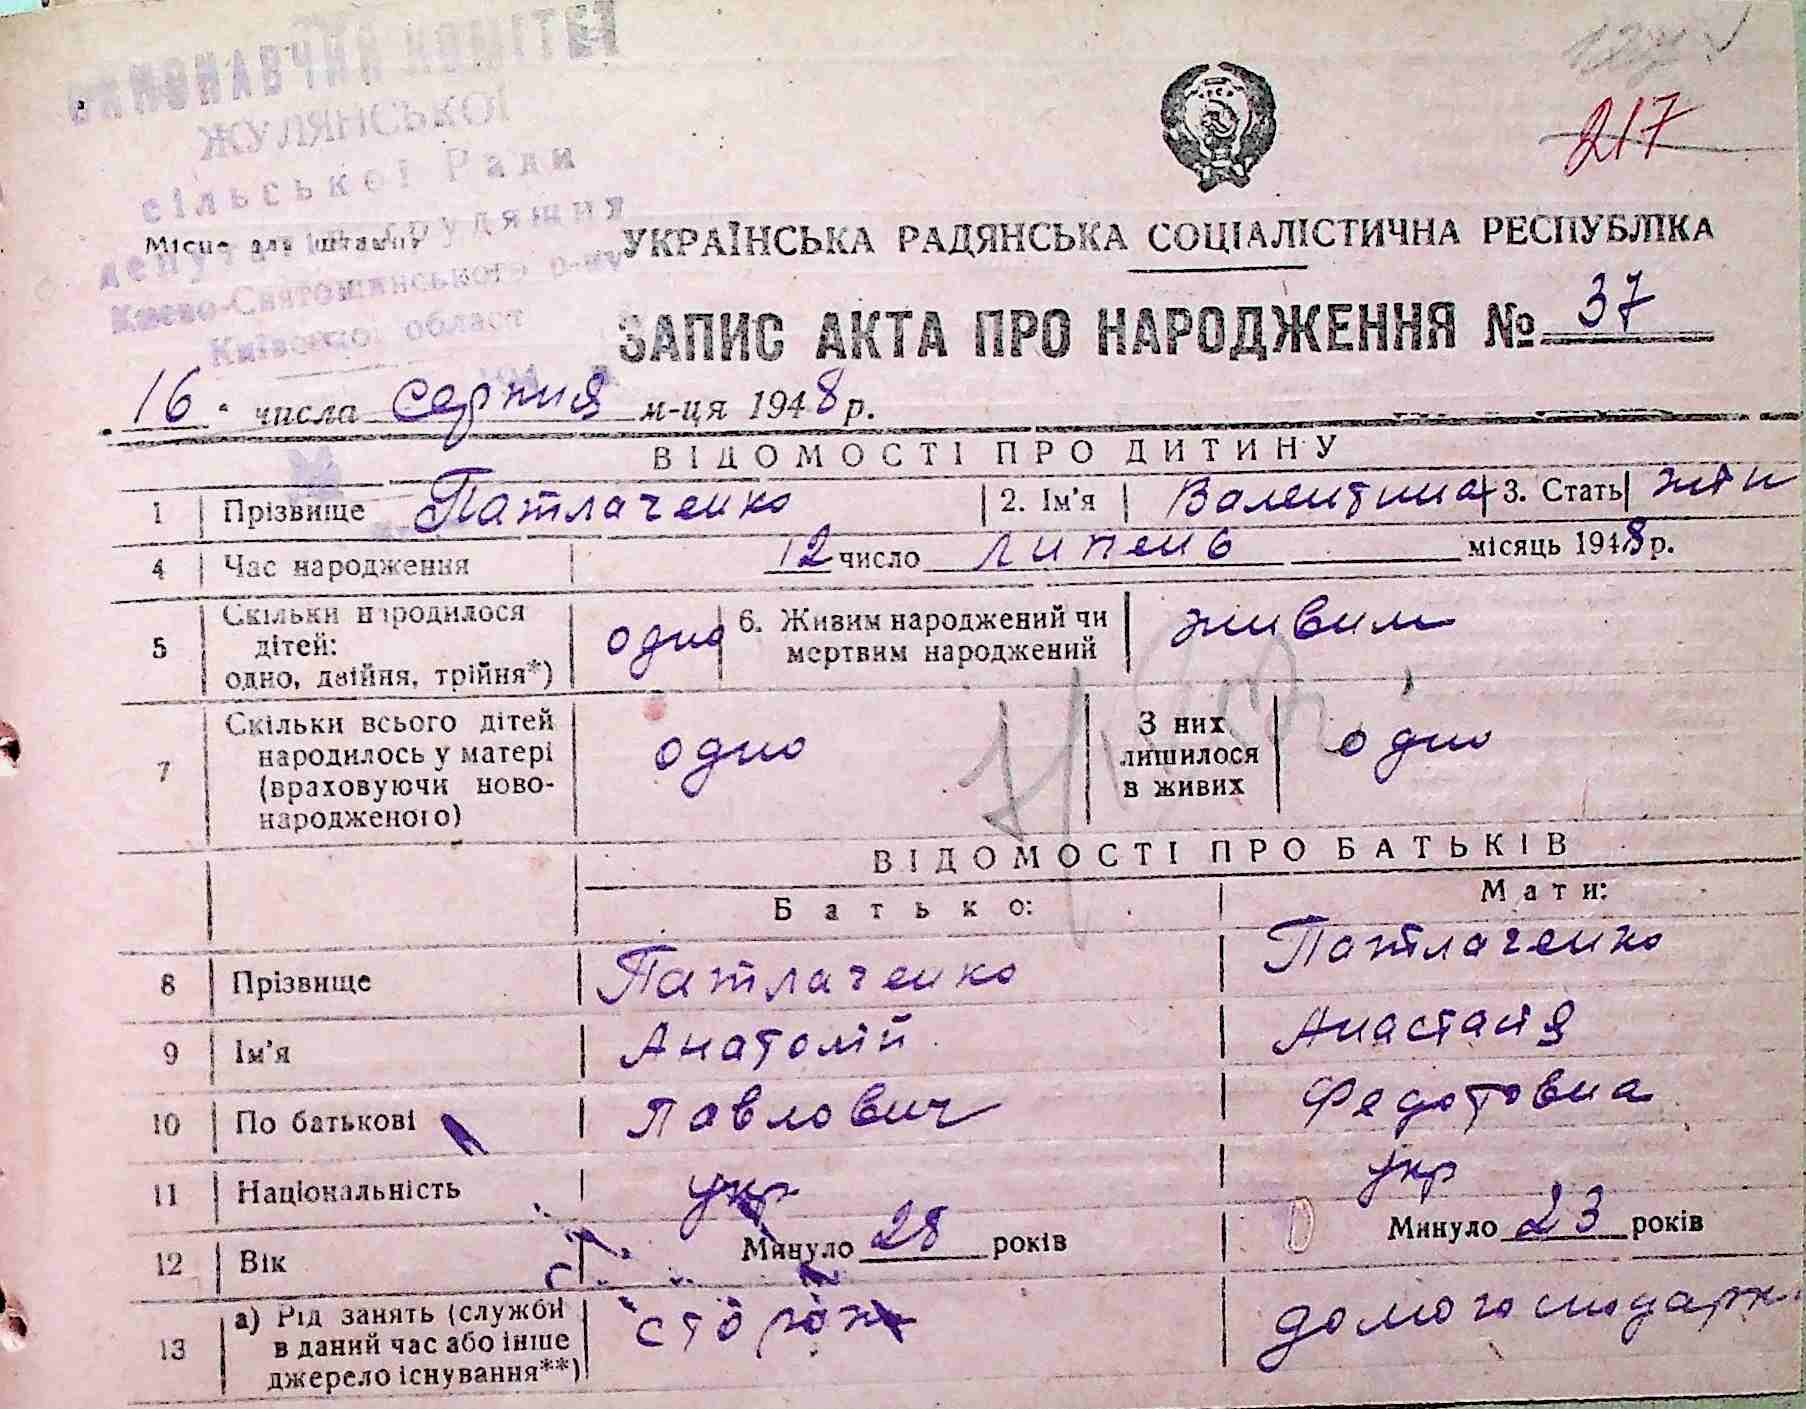 ВИКОНАВЧИЙ КОМІТЕТ
ЖУЛЯНСЬКОЇ
сільської Ради
депутатів трудящих
Місце для штампу
Києво-Святошинського р-ну
Київської област
217
УКРАЇНСЬКА РАДЯНСЬКА СОЦІАЛІСТИЧНА РЕСПУБЛІКА
ЗАПИС АКТА ПРО НАРОДЖЕННЯ № 37
16 числа серпня м-ця 1948 р.
ВІДОМОСТІ ПРО ДИТИНУ
1 Прізвище Патлаченко 2. Ім'я Валентина 3. Стать жін
4 Час народження 12 число липень місяць 1948 р.
5 Скільки народилося дітей: одно, двійня, трійня*) одно 6. Живим народжений чи мертвим народжений живим
7 Скільки всього дітей народилось у матері (враховуючи ново-народженого) одно З них лишилося в живих одно
ВІДОМОСТІ ПРО БАТЬКІВ
Батько: Мати:
8 Прізвище Патлаченко Патлаченко
9 Ім'я Анатолій Анастасія
10 По батькові Павлович Федотовна
11 Національність укр укр
12 Вік Минуло 28 років Минуло 23 років
13 а) Рід занять (служби в даний час або інше джерело існування**) сторож домогосподарк